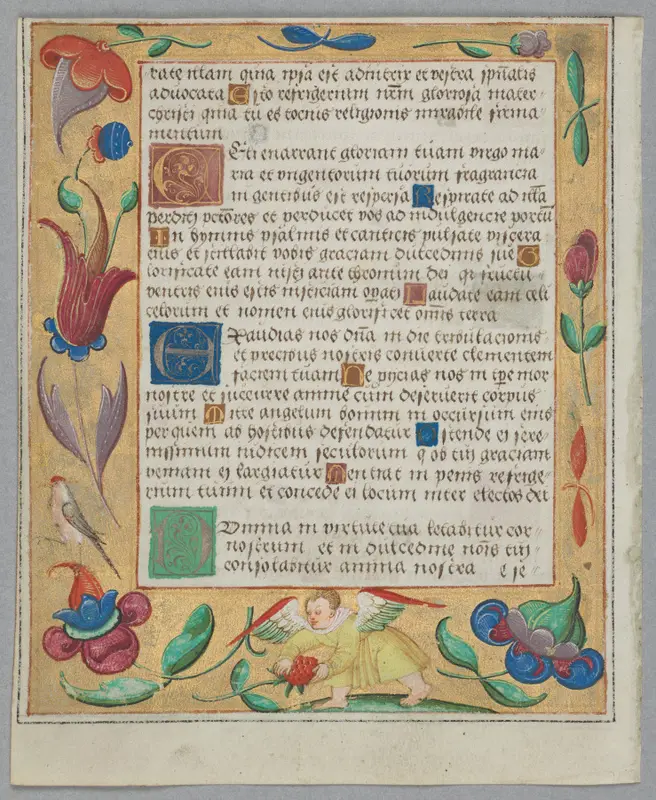 rate illam quia ipsa est adiutrix et vestra spualis
advocata Esto refrigerium nrm gloriosa mater
christi quia tu es tocius religionis mirabile firma
mentum
Celi enarrant gloriam tuam virgo ma-
ria et ungentorum tuorum fragrancia
in gentibus est respersa Respirate ad illa
perditi pctores et perducet vos ad indulgencie portu
In hymnis psalmis et canticis pulsate viscera
eius et instillabit vobis graciam dulcedinis sue G
lorificate eam iusti ante thronum dei qr fructu
ventris eius estis iusticiam opati Laudate eam celi
celorum et nomen eius glorificet omis terra
Exaudias nos dna in die tribulacionis
et precibus nostris converte clementem
faciem tuam Ne proicias nos in tpe mor
nostre et succurre anime cum deseruerit corpus
suum Mitte angelum bonum in occursum eius
per quem ab hostibus defendatur Ostende ei sere-
nissimum iudicem seculorum q ob tui graciam
veniam ei largiatur in penis refrige-
rium tuum et concede ei locum inter electos dei
Domina in virtute tua letabitur cor
nostrum et in dulcedine nois tui
consolabitur anima nostra